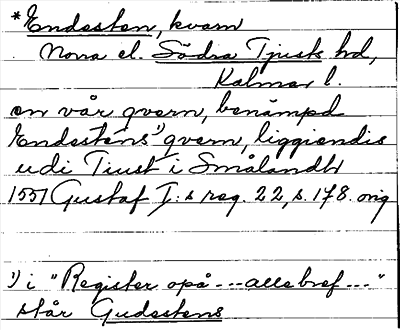 *Endesten, kvarn
Norra el. Södra Tjusts hd,
Kalmar l.
en vår qvern, benämpd
Endestens¹⁾ qvern, liggiendis
udi Tiust i Smålandh
1551 Gustaf I:s reg. 22, s. 178. orig
1) i "Register opå --- alle bref ---"
står Gudestens